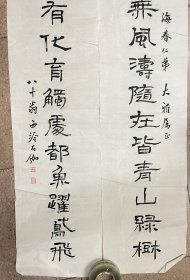 海春仁弟 大雅屬正
乘風濤隨在皆青山綠樹
有化育觸處都魚躍鳶飛
八十翁